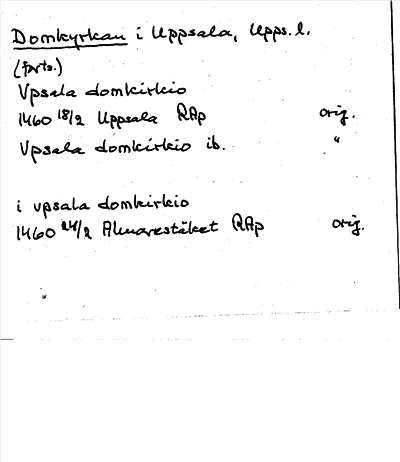 Domkyrkan i Uppsala, Upps. l.
(forts.)
Vpsala domkirkio
1460 18/2 Uppsala RAp orig.
Vpsala domkirkio ib. "
i vpsala domkirkio
1460 24/2 Almarestäket RAp orig.